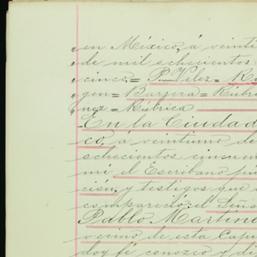 en México, á veinti
de mil ochocientos
cinco = P. Velez = Rú
gen = Barrera = Rúbri
nez = Rúbrica
En la Ciudad
co, á veintiuno de
ochocientos cincuen
mí el Escribano pú
ción, y testigos que
compareció: el Seño
Pablo Martine
vecino de esta Capi
doy fé conozco y di